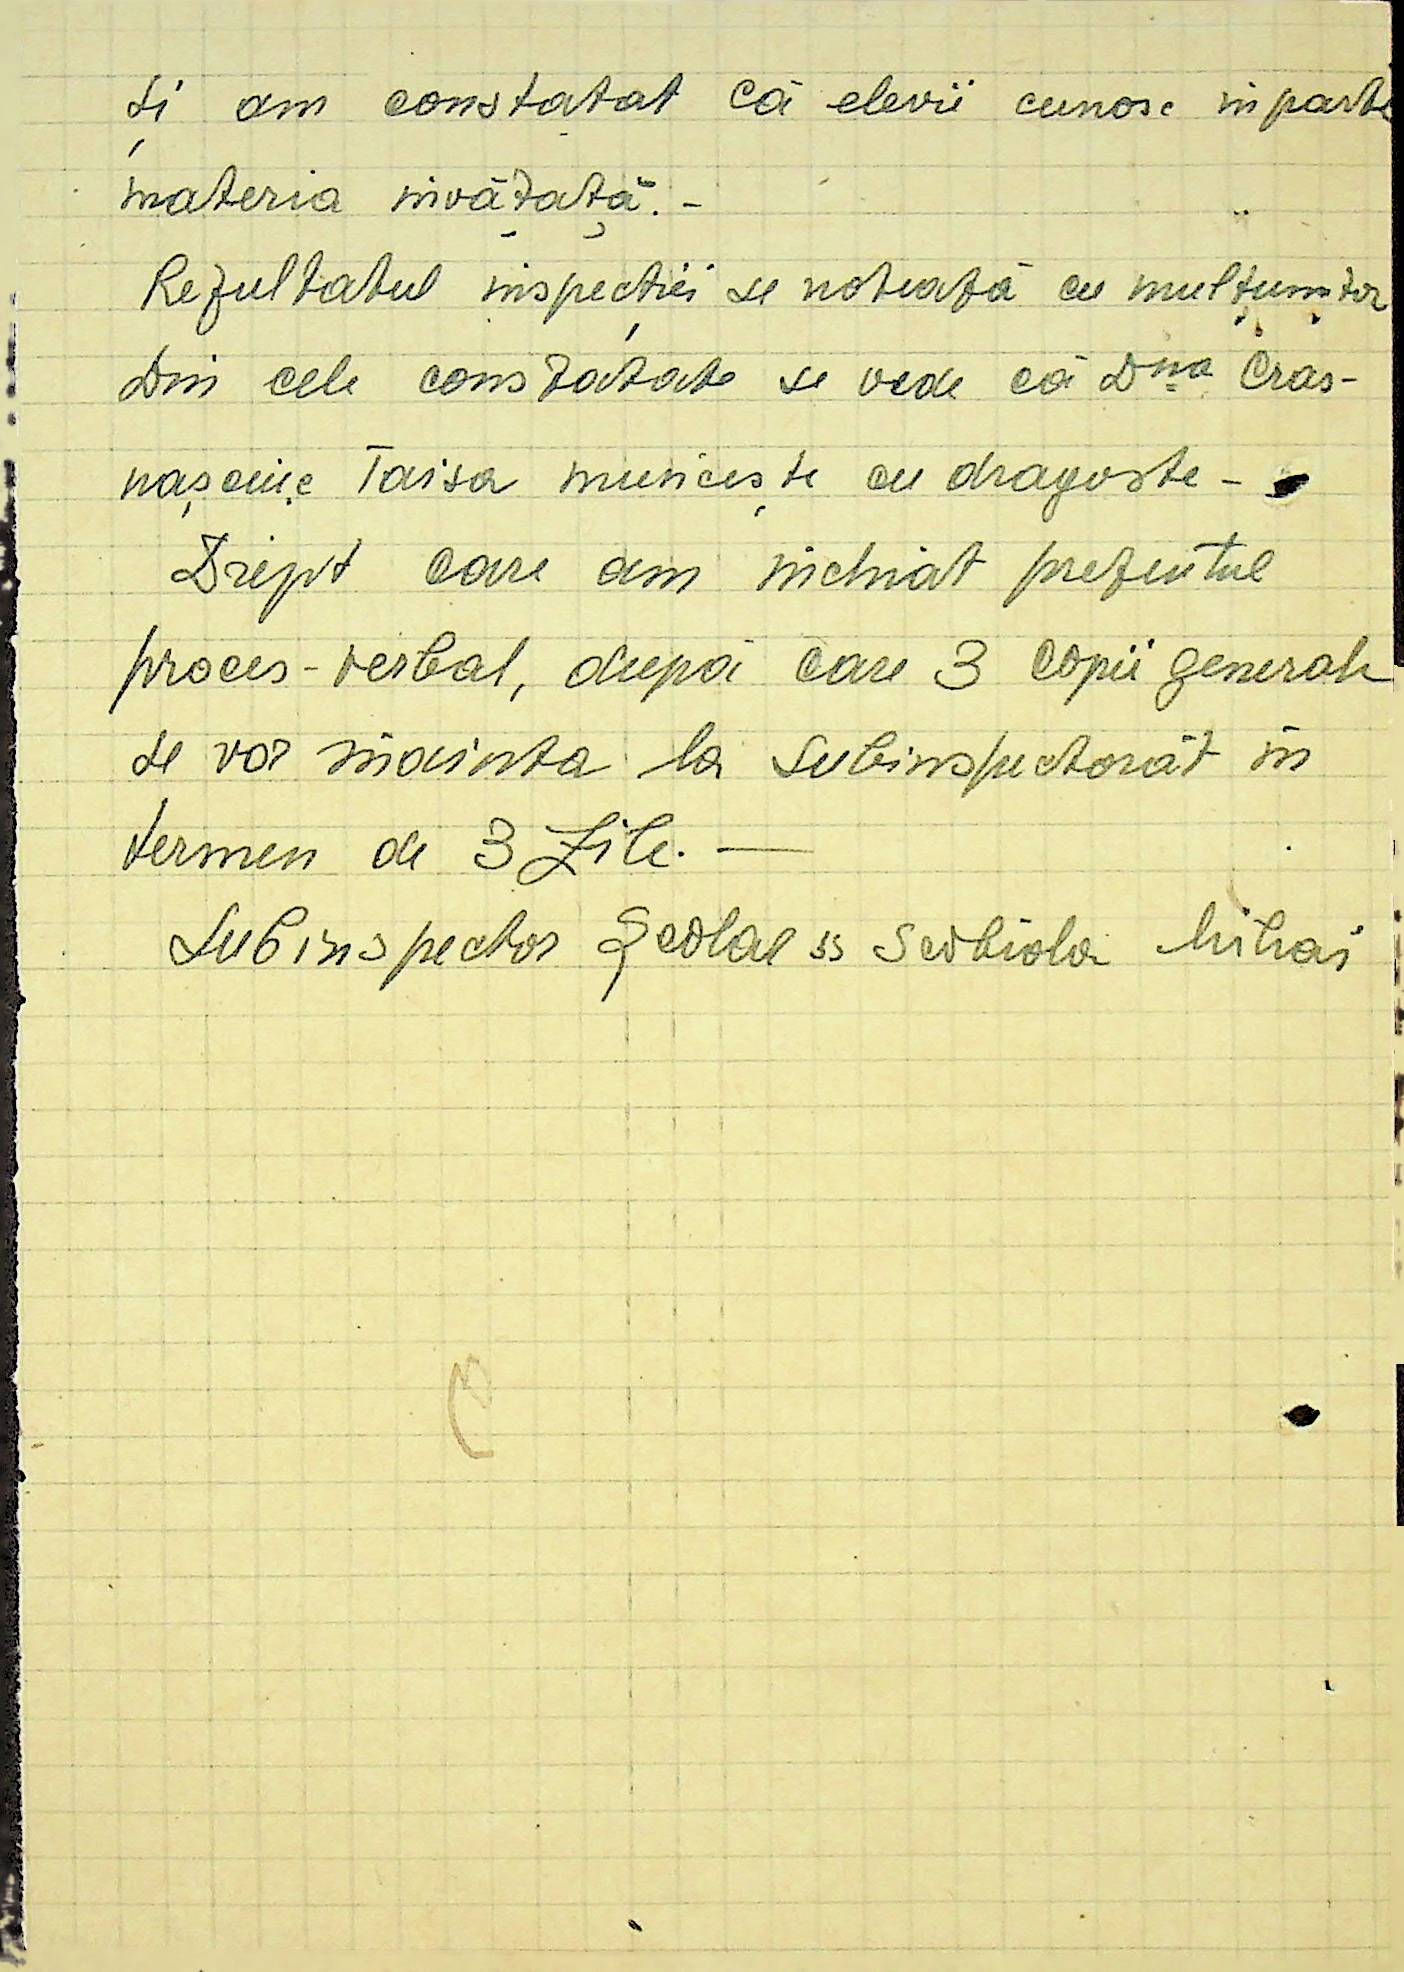 și am constatat că elevii cunosc în parte
materia învățată. -
Rezultatul inspecției se notează cu mulțumitor
Din cele constatate se vede că Dna Cras-
nașciuc Taisa muncește cu dragoste -
Drept care am închiat prezentul
proces-verbal, după care 3 copii generale
se vor înainta la Subinspectorat în
termen de 3 zile. —
Subinspector Școlar ss Scobiola Mihai